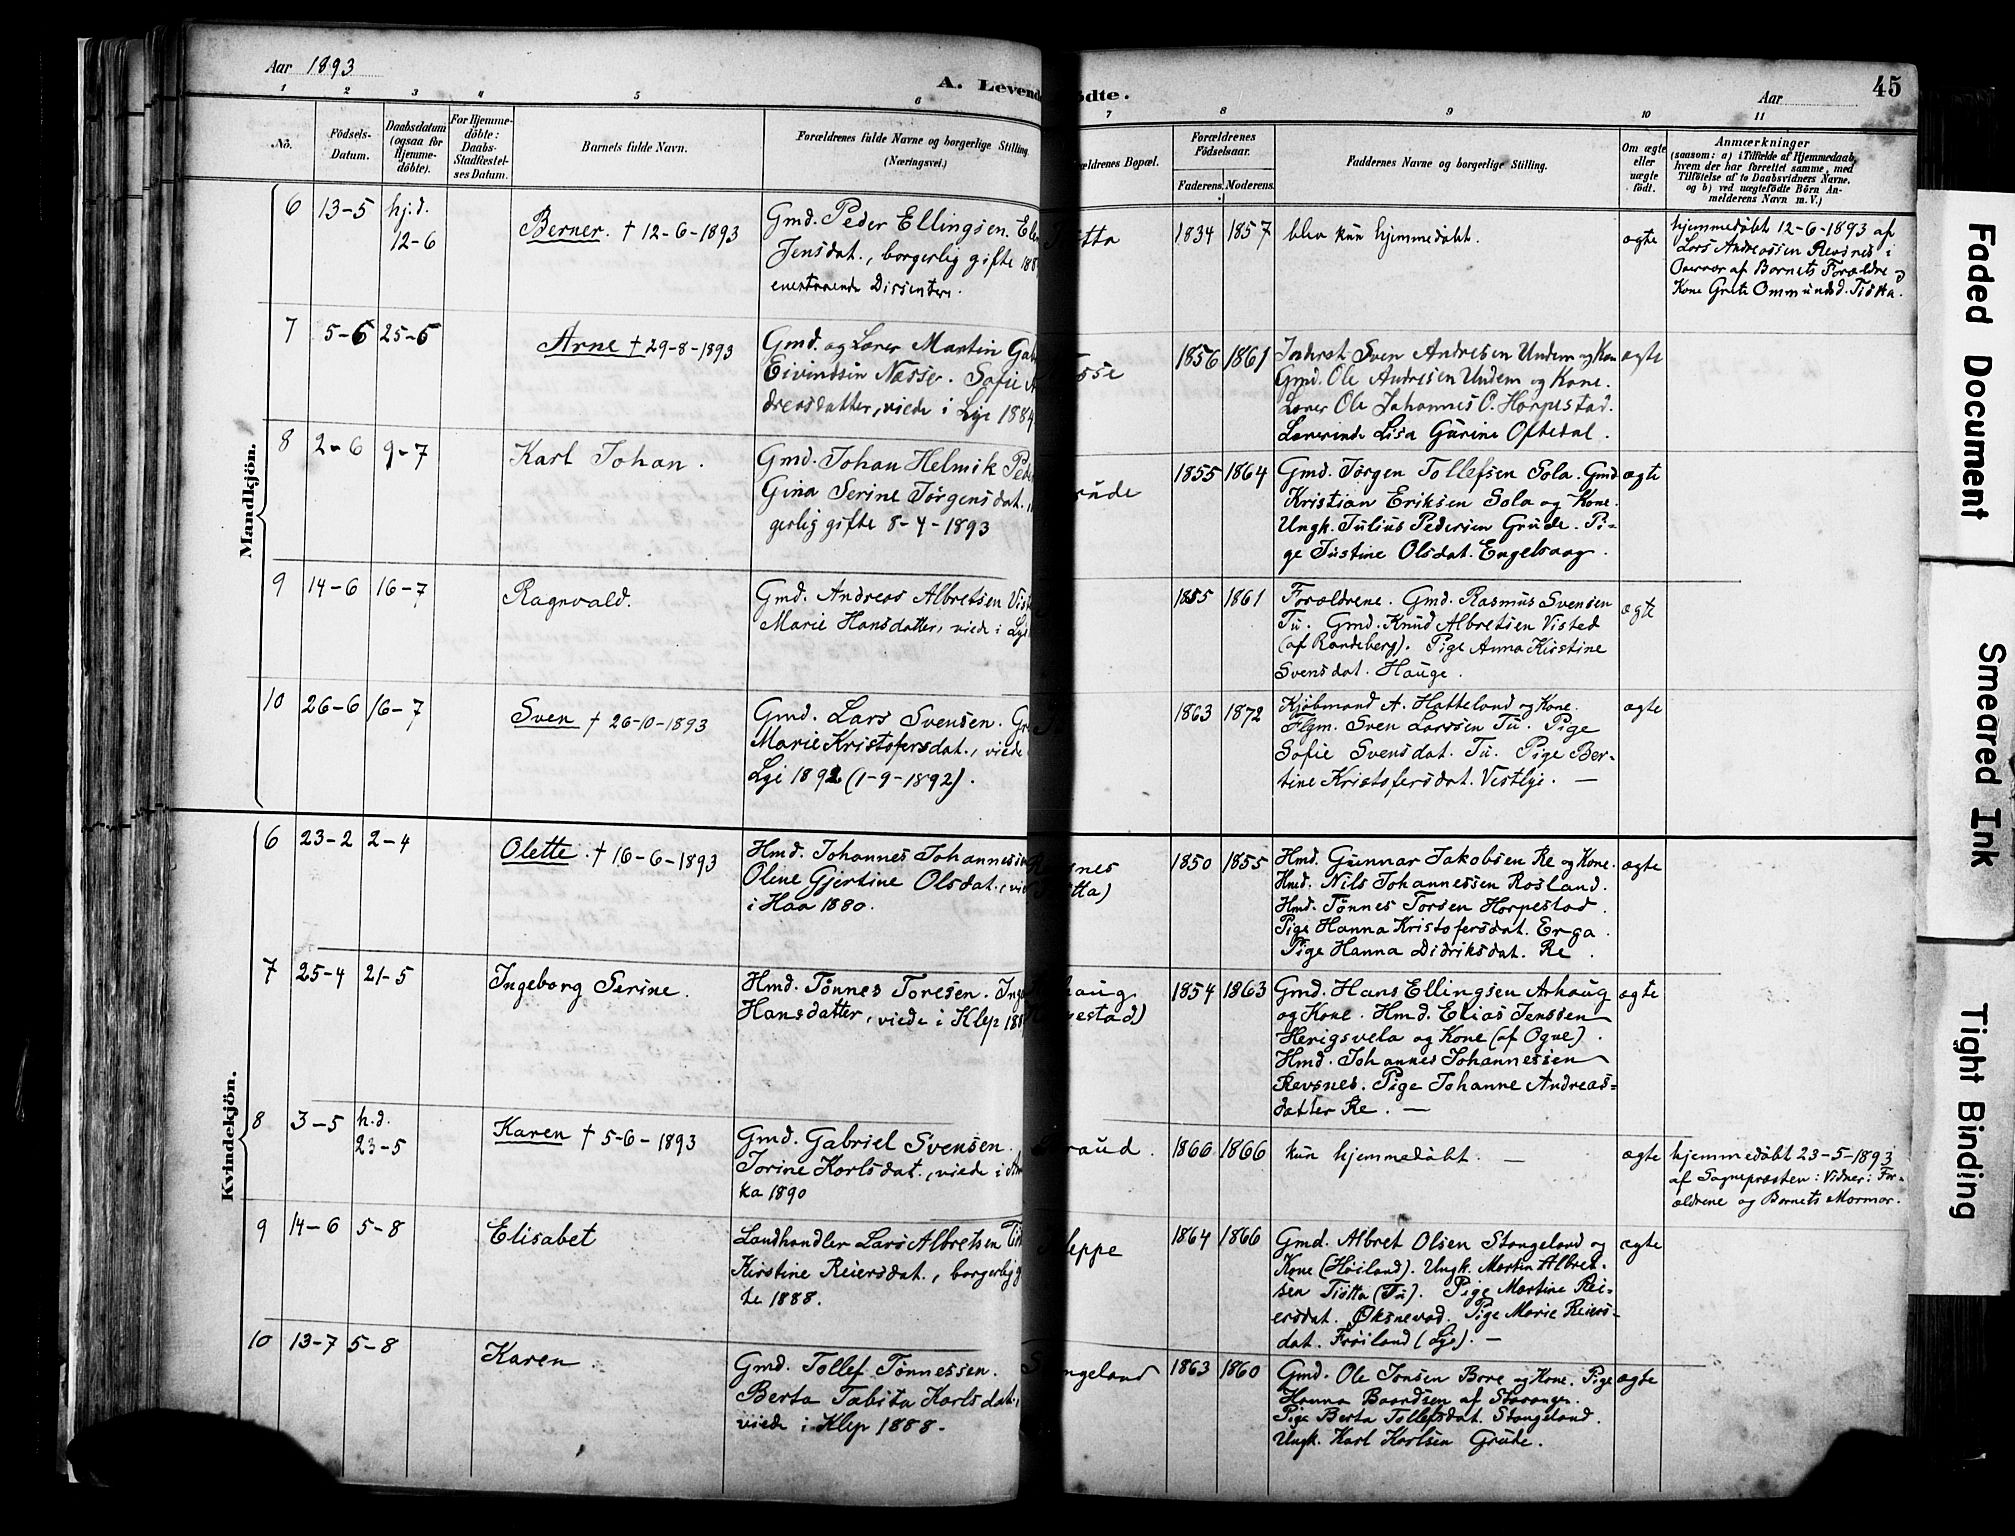 Aar 1893
A. Levende
ødte.
Aar
45
1 2 3 4 5 6 7 8 9 10 11
No.
Födsels-
Datum.
Daabsdatum
(ogsaa for
Hjemme-
döbte).
For Hjemme-
döbte:
Daabs-
Stadfæstel-
ses Datum.
Barnets fulde Navn.
Forældrenes fulde Navne og borgerlige Stilling.
(Næringsvei.)
ældrenes Bopæl.
Forældrenes
Födselsaar.
Faderens. Moderens.
Faddernes Navne og borgerlige Stilling.
Om ægte
eller
uægte
födt.
Anmærkninger
(saasom: a) i Tilfælde af Hjemmedaab,
hvem der har forrettet samme, med
Tilföielse af to Daabsvidners Navne,
og b) ved uægtefödte Börn An-
melderens Navn m. V.)
Mandkjön.
6 13-5 hj.d.
12-6
Berner. † 12-6-1893
Gmd. Peder Ellingsen. Ele
Jensdat., borgerlig gifte 188
enestaaende Dissentere.
1834 1857
blev kun hjemmedøbt.
ægte
hjemmedøbt 12-6-1893 af
Lars Andreassen Revsnes i
Overvær af Barnets Forældre og
Kone Grete Ommundsd. Tiøtta.
7 5-6 25-6
Arne † 29-8-1893
Gmd. og Lærer Martin Gab
Eivindsen Næsse. Sofie A
dreasdatter, viede i Lye 1884
1856 1861
Inderst Sven Andresen Undem og Kone
Gmd. Ole Andresen Undem og Kone.
Lærer Ole Johannes O. Horpestad.
Lærerinde Lisa Gurine Oftedal.
ægte
8 2-6 9-7
Karl Johan.
Gmd. Johan Helmik Peder
Gina Serine Jørgensdat.
gerlig gifte 8-4-1893
rude
1855 1864
Gmd. Jørgen Tollefsen Sola. Gmd
Kristian Eriksen Sola og Kone.
Ungk. Julius Pedersen Grude. Pi-
ge Justine Olsdat. Engelsvog.
ægte
9 14-6 16-7
Ragnvald.
Gmd. Andreas Albretsen Vist
Marie Hansdatter, viede i Lye
1855 1861
Forældrene. Gmd. Rasmus Svensen
Tu. Gmd. Knud Albretsen Visted
(af Randeberg). Pige Anna Kirstine
Svensdat. Hauge.
ægte
10 26-6 16-7
Sven † 26-10-1893
Gmd. Lars Svensen. Gu
Marie Kristofersdat., viede
Lye 1892 (1-9-1892).
1863 1872
Kjøbmand A. Hatteland og Kone.
Flgm. Sven Larssen Tu. Pige
Sofie Svensdat. Tu. Pige Ber-
tine Kristofersdat. Vestlye. —
ægte
Kvindekjön.
6 23-2 2-4
Olette. † 16-6-1893
Hmd. Johannes Johannesen
Olene Gjertine Olsdat., vied
i Haa 1880.
snes
tta)
1850 1855
Hmd. Gunnar Jakobsen Re og Kone.
Hmd. Nils Johannessen Rosland.
Hmd. Tønnes Torsen Horpestad.
Pige Hanna Kristofersdat. Erga.
Pige Hanna Didriksdat. Re.
ægte
7 25-4 21-5
Ingeborg Serine.
Hmd. Tønnes Toresen. Inge
Hansdatter, viede i Klep 188
haug
pestad)
1854 1863
Gmd. Hans Ellingsen Arhaug
og Kone. Hmd. Elias Jenssen
Herigsvela og Kone (af Ogne).
Hmd. Johannes Johannessen
Revsnes. Pige Johanne Andreas-
datter Re. —
ægte
8 3-5 h.d.
23-5
Karen † 5-6-1893
Gmd. Gabriel Svensen.
Torine Karlsdat., viede i Ame
ka 1890
raud.
1866 1866
kun hjemmedøbt. —
ægte
hjemmedøbt 23-5-1893
af Sognepræsten: Vidner: For-
ældrene og Barnets Mormor.
9 14-6 5-8
Elisabet
Landhandler Lars Albretsen Tiø
Kirstine Reiersdat., borgerlig g
te 1888.
leppe
1864 1866
Gmd. Albret Olsen Stangeland og
Kone (Høiland). Ungk. Martin Albret-
sen Tiøtta (Tu). Pige Martine Rei-
ersdat. Øksnevad. Pige Marie Reiers-
dat. Frøiland (Lye). —
ægte
10 13-7 5-8
Karen
Gmd. Tollef Tønnessen.
Berta Tabita Karlsdat.,
viede i Klep 1888.
ngeland
1863 1860
Gmd. Ole Jonsen Bore og Kone. Pige
Hanna Baardsen af Stavanger.
Pige Berta Tollefsdat. Stangeland.
Ungk. Karl Karlsen Grude.
ægte
Faded Document
Smeared Ink
Tight Binding